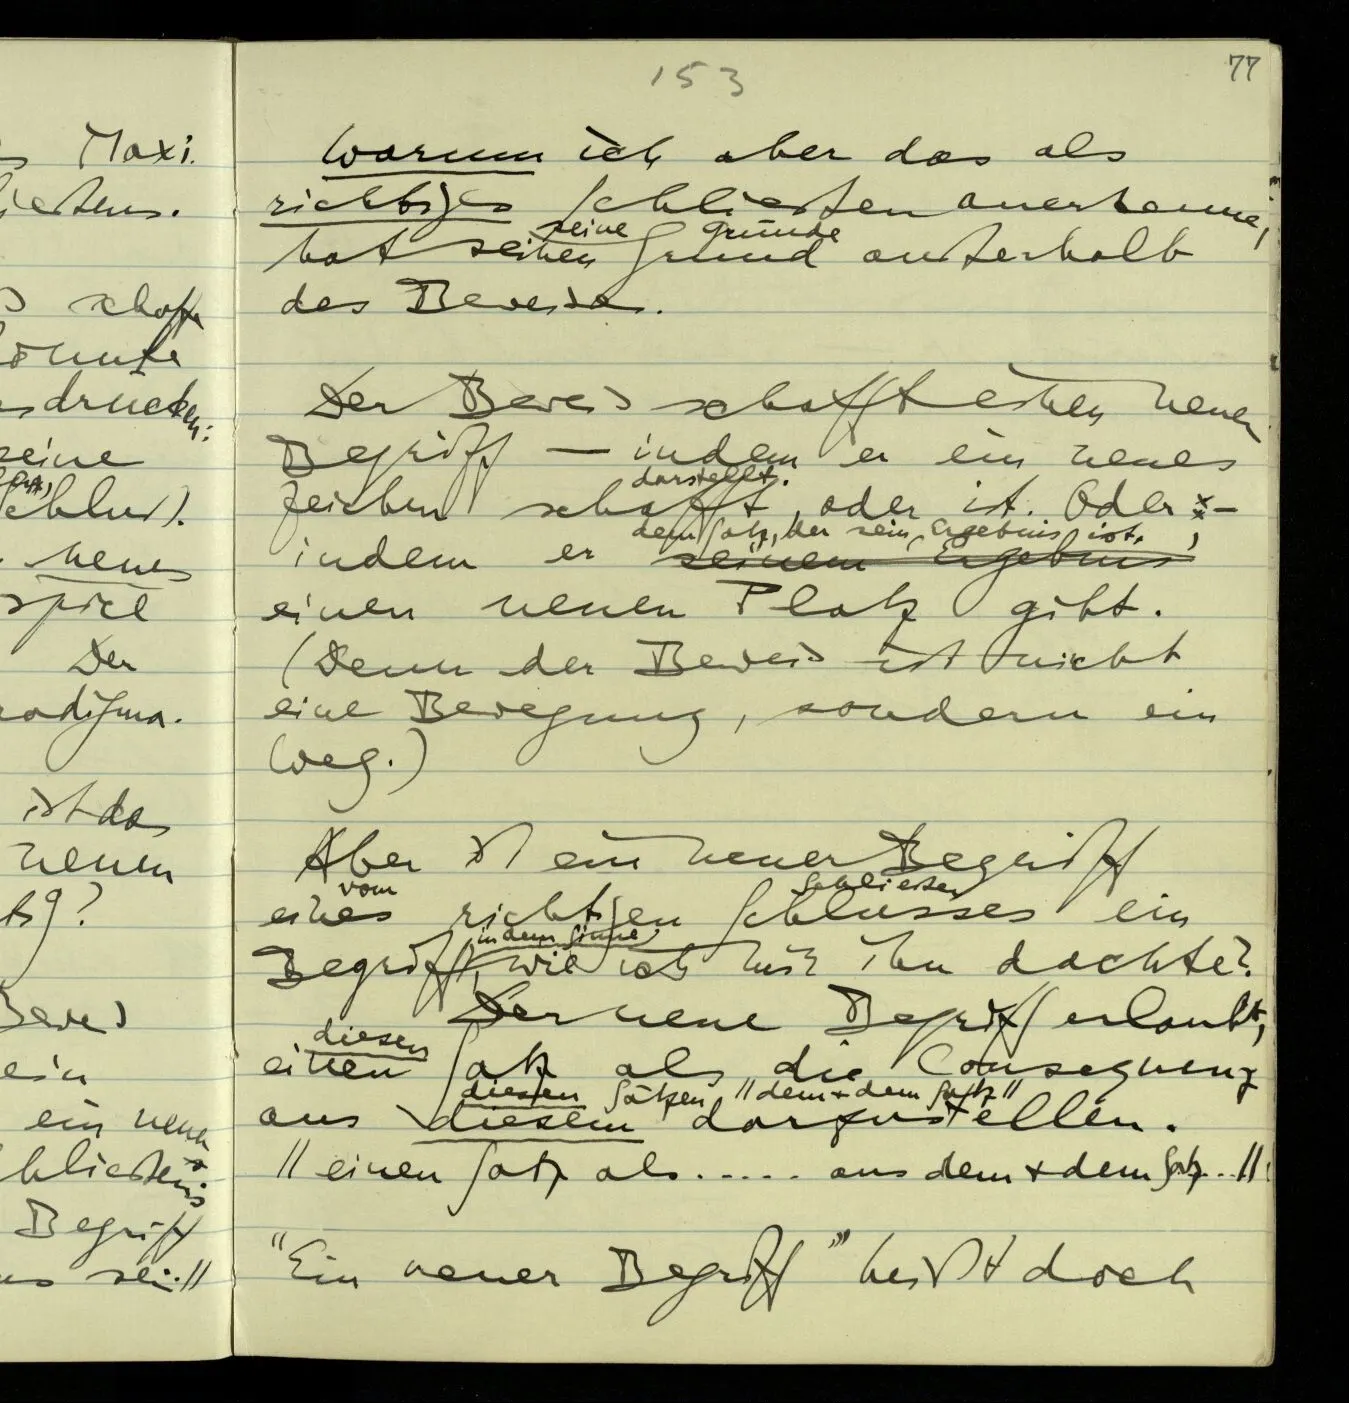 s Maxi.
ließens.
s schaffe
könnte
usdrucken:
seine
Schluß).
neues
spiel
Der
radigma.
ist das
neuen
Beweis
ein
ein neuer
hließens
Begriff
sei.//
153
77
Warum ich aber das als
richtiges Schließen anerkenne,
seine Gründe
hat seinen Grund außerhalb
des Beweises.
Der Beweis schafft einen neuen
Begriff — indem er ein neues
darstellt.
Zeichen schafft, oder ist. Oder —
dem Satz, der sein Ergebnis ist,
indem er seinem Ergebnis
einen neuen Platz gibt.
(Denn der Beweis ist nicht
eine Bewegung, sondern ein
Weg.)
Aber ist ein neuer Begriff
vom Schließen
eines richtigen Schlusses ein
in dem Sinne
Begriff, wie ich mir ihn dachte?
Der neue Begriff erlaubt,
diesen
einen Satz als die Consequenz
diesen Sätzen //dem + dem Satz//
aus diesem darzustellen.
// einen Satz als..... aus dem + dem Satz...//
"Ein neuer Begriff" heißt doch